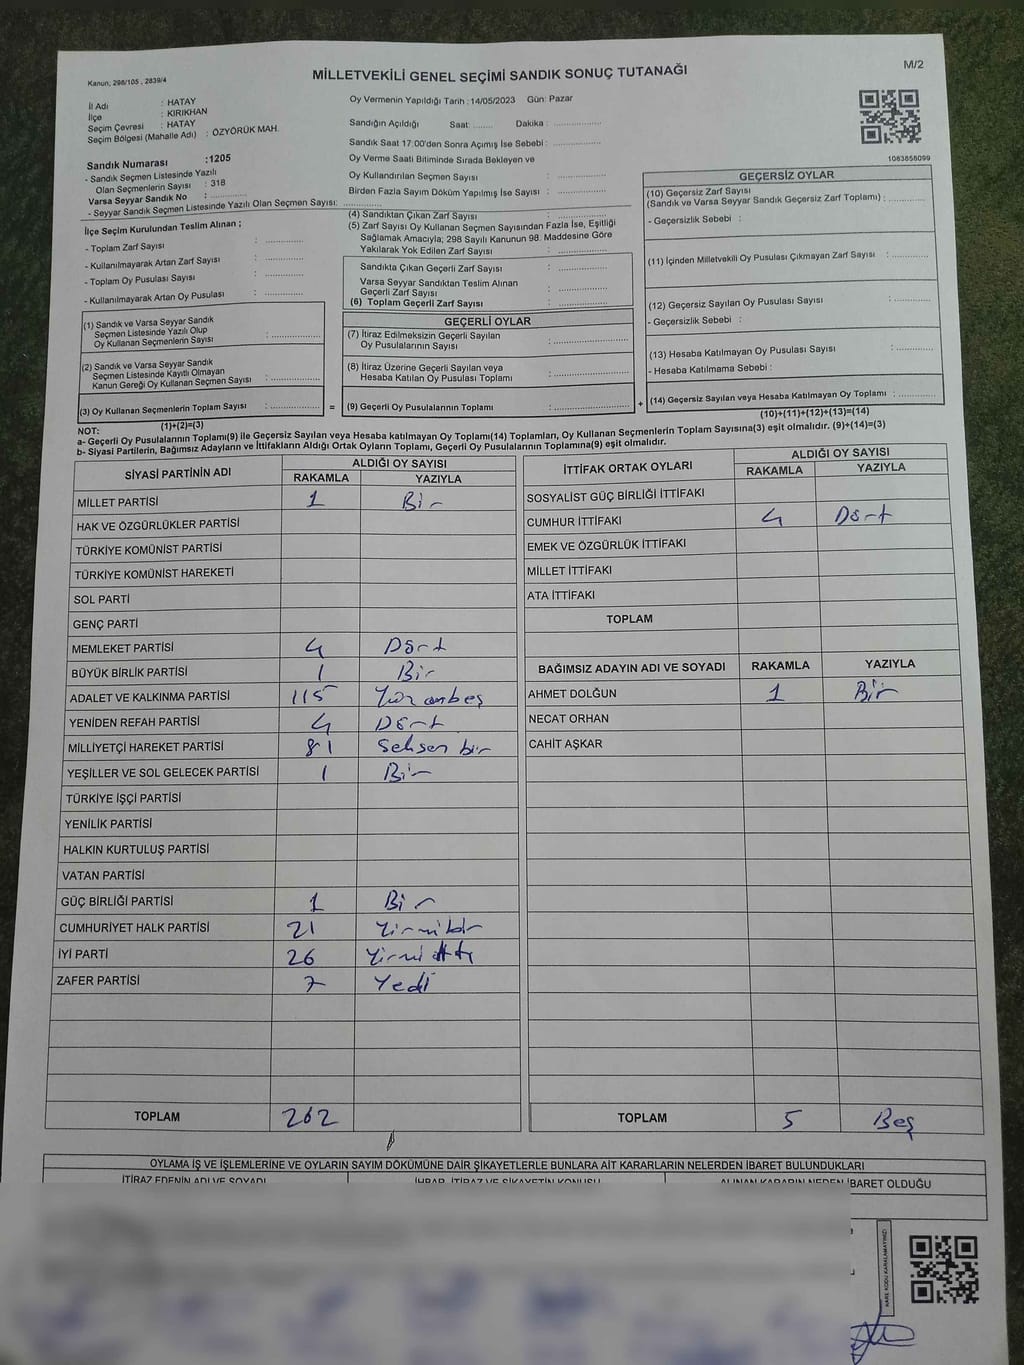 Kanun; 298/105 , 2839/4
MİLLETVEKİLİ GENEL SEÇİMİ SANDIK SONUÇ TUTANAĞI
M/2
İl Adı : HATAY
İlçe : KIRIKHAN
Seçim Çevresi : HATAY
Seçim Bölgesi (Mahalle Adı) : ÖZYÖRÜK MAH.
Sandık Numarası :1205
- Sandık Seçmen Listesinde Yazılı
Olan Seçmenlerin Sayısı : 318
Varsa Seyyar Sandık No :
- Seyyar Sandık Seçmen Listesinde Yazılı Olan Seçmen Sayısı:
İlçe Seçim Kurulundan Teslim Alınan ;
- Toplam Zarf Sayısı :
- Kullanılmayarak Artan Zarf Sayısı :
- Toplam Oy Pusulası Sayısı :
- Kullanılmayarak Artan Oy Pusulası :
(1) Sandık ve Varsa Seyyar Sandık
Seçmen Listesinde Yazılı Olup
Oy Kullanan Seçmenlerin Sayısı :
(2) Sandık ve Varsa Seyyar Sandık
Seçmen Listesinde Kayıtlı Olmayan
Kanun Gereği Oy Kullanan Seçmen Sayısı :
(3) Oy Kullanan Seçmenlerin Toplam Sayısı :
(1)+(2)=(3)
Oy Vermenin Yapıldığı Tarih : 14/05/2023 Gün: Pazar
Sandığın Açıldığı Saat: Dakika :
Sandık Saat 17:00'den Sonra Açımış İse Sebebi :
Oy Verme Saati Bitiminde Sırada Bekleyen ve
Oy Kullandırılan Seçmen Sayısı :
Birden Fazla Sayım Döküm Yapılmış İse Sayısı :
(4) Sandıktan Çıkan Zarf Sayısı :
(5) Zarf Sayısı Oy Kullanan Seçmen Sayısından Fazla İse, Eşitliği
Sağlamak Amacıyla; 298 Sayılı Kanunun 98. Maddesine Göre
Yakılarak Yok Edilen Zarf Sayısı :
Sandıkta Çıkan Geçerli Zarf Sayısı :
Varsa Seyyar Sandıktan Teslim Alınan
Geçerli Zarf Sayısı :
(6) Toplam Geçerli Zarf Sayısı :
GEÇERLİ OYLAR
(7) İtiraz Edilmeksizin Geçerli Sayılan
Oy Pusulalarının Sayısı :
(8) İtiraz Üzerine Geçerli Sayılan veya
Hesaba Katılan Oy Pusulası Toplamı :
= (9) Geçerli Oy Pusulalarının Toplamı : +
1083858099
GEÇERSİZ OYLAR
(10) Geçersiz Zarf Sayısı
(Sandık ve Varsa Seyyar Sandık Geçersiz Zarf Toplamı) :
- Geçersizlik Sebebi :
(11) İçinden Milletvekili Oy Pusulası Çıkmayan Zarf Sayısı :
(12) Geçersiz Sayılan Oy Pusulası Sayısı :
- Geçersizlik Sebebi :
(13) Hesaba Katılmayan Oy Pusulası Sayısı :
- Hesaba Katılmama Sebebi :
(14) Geçersiz Sayılan veya Hesaba Katılmayan Oy Toplamı :
(10)+(11)+(12)+(13)=(14)
NOT:
a- Geçerli Oy Pusulalarının Toplamı(9) ile Geçersiz Sayılan veya Hesaba katılmayan Oy Toplamı(14) Toplamları, Oy Kullanan Seçmenlerin Toplam Sayısına(3) eşit olmalıdır. (9)+(14)=(3)
b- Siyasi Partilerin, Bağımsız Adayların ve İttifakların Aldığı Ortak Oyların Toplamı, Geçerli Oy Pusulalarının Toplamına(9) eşit olmalıdır.
SİYASİ PARTİNİN ADI ALDIĞI OY SAYISI
RAKAMLA YAZIYLA
MİLLET PARTİSİ 1 Bir
HAK VE ÖZGÜRLÜKLER PARTİSİ
TÜRKİYE KOMÜNİST PARTİSİ
TÜRKİYE KOMÜNİST HAREKETİ
SOL PARTİ
GENÇ PARTİ
MEMLEKET PARTİSİ 4 Dört
BÜYÜK BİRLİK PARTİSİ 1 Bir
ADALET VE KALKINMA PARTİSİ 115 Yüz onbeş
YENİDEN REFAH PARTİSİ 4 Dört
MİLLİYETÇİ HAREKET PARTİSİ 81 Seksen bir
YEŞİLLER VE SOL GELECEK PARTİSİ 1 Bir
TÜRKİYE İŞÇİ PARTİSİ
YENİLİK PARTİSİ
HALKIN KURTULUŞ PARTİSİ
VATAN PARTİSİ
GÜÇ BİRLİĞİ PARTİSİ 1 Bir
CUMHURİYET HALK PARTİSİ 21 Yirmibir
İYİ PARTİ 26 Yirmi altı
ZAFER PARTİSİ 7 Yedi
TOPLAM 262
İTTİFAK ORTAK OYLARI ALDIĞI OY SAYISI
RAKAMLA YAZIYLA
SOSYALİST GÜÇ BİRLİĞİ İTTİFAKI
CUMHUR İTTİFAKI 4 Dört
EMEK VE ÖZGÜRLÜK İTTİFAKI
MİLLET İTTİFAKI
ATA İTTİFAKI
TOPLAM
BAĞIMSIZ ADAYIN ADI VE SOYADI RAKAMLA YAZIYLA
AHMET DOLĞUN 1 Bir
NECAT ORHAN
CAHİT AŞKAR
TOPLAM 5 Beş
OYLAMA İŞ VE İŞLEMLERİNE VE OYLARIN SAYIM DÖKÜMÜNE DAİR ŞİKAYETLERLE BUNLARA AİT KARARLARIN NELERDEN İBARET BULUNDUKLARI
İTİRAZ EDENİN ADI VE SOYADI İHBAR, İTİRAZ VE ŞİKAYETİN KONUSU ALINAN KARARIN NEDEN İBARET OLDUĞU
KARE KODU KARALAMAYINIZ!